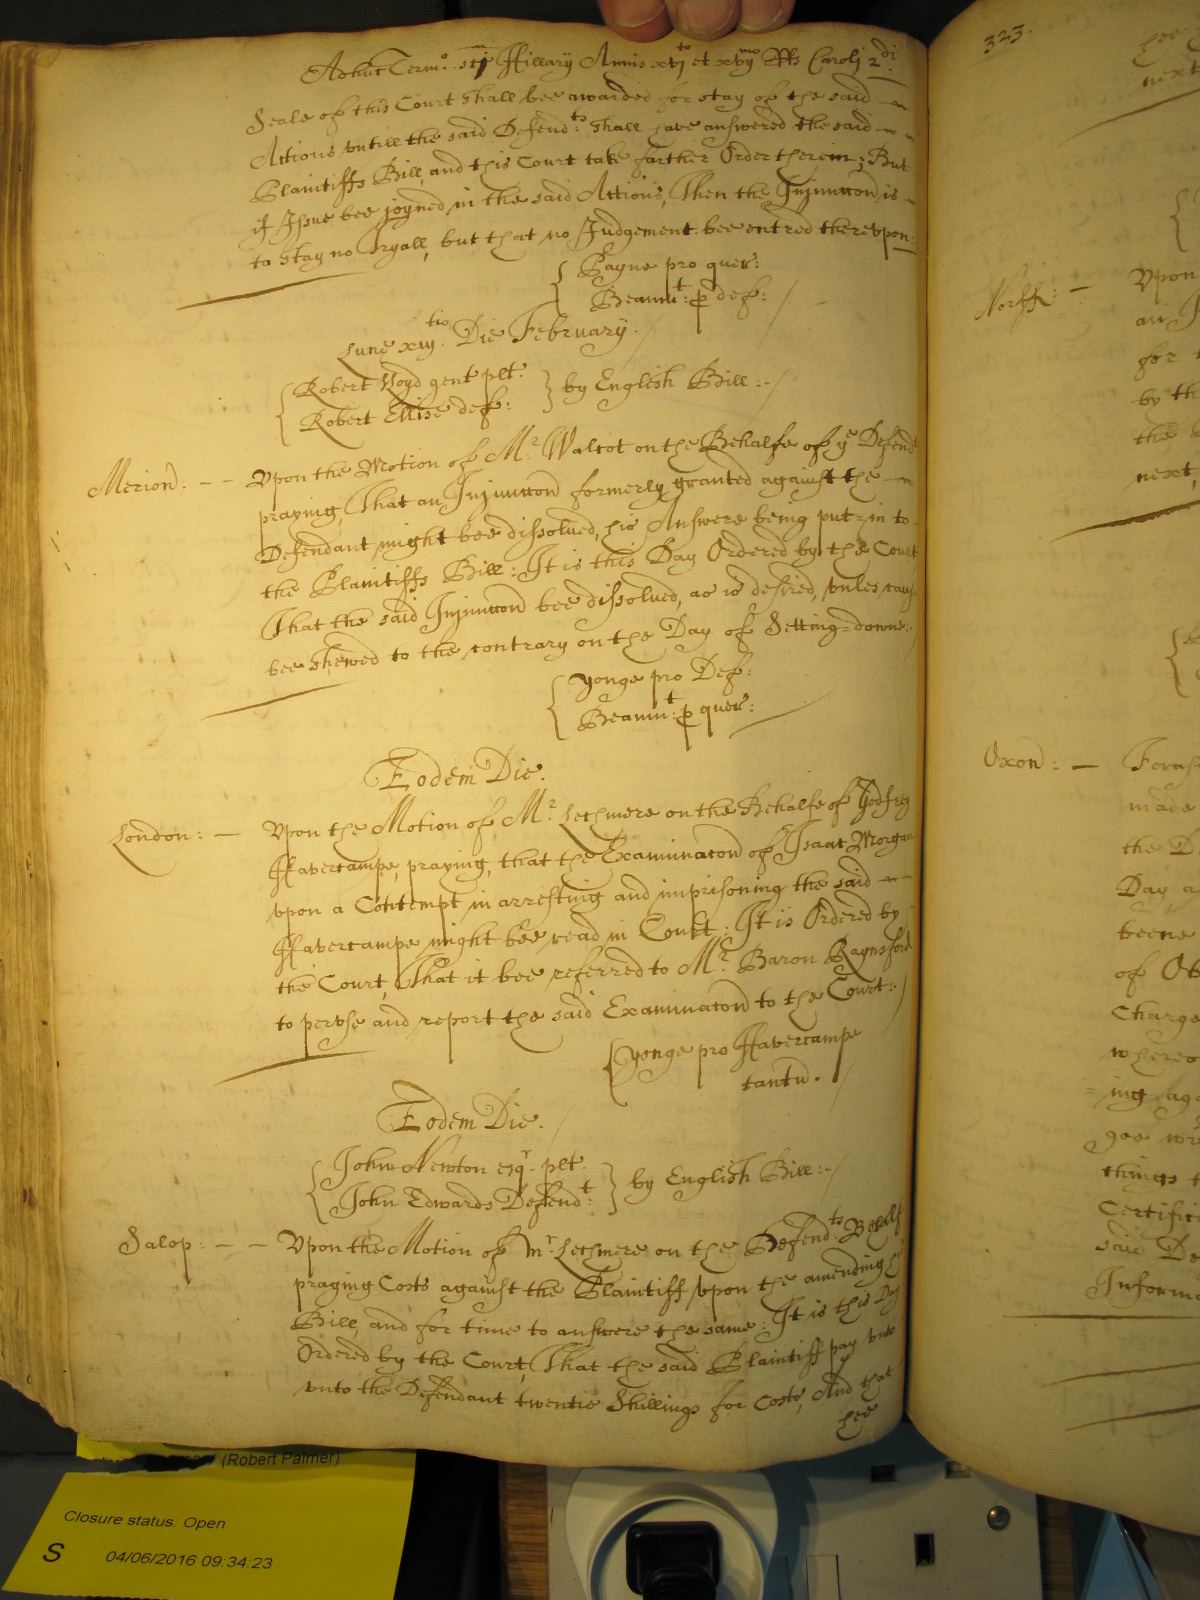 Adhuc Termo. sti Hillary Annis xvito et xviimo Rs Caroli 2di
Seale of this Court shall bee awarded for stay of the said
Actions vntill the said Defendts: shall have answered the said
Plaintiffs Bill, and this Court take farther Order therein; But
if Issue bee joyned in the said Actions, Then the Injunccon is
to stay no Tryall, but that no Judgement bee entred therevpon:
Payne pro quer:
Beaumt: p def:
Lune xiijtio. Die February.
Robert Lloyd gent plt:
Robert Ellise def:
by English Bill:-
Merion: - - Vpon the Motion of Mr. Walcot on the Behalfe of ye Defendt
praying, That an Injunccon formerly granted against the
Defendant might bee dissolved, his Answere being put=in to
the Plaintiffs Bill: It is this Day Ordered by the Court
That the said Injunccon bee dissolved, as is desired, vnles caus
bee shewed to the contrary on the Day of Setting=downe:
Yonge pro Def:
Beaumt: p quer:
Eodem Die.
London: - Vpon the Motion of Mr. Lechmere on the Behalfe of Godfrey
Havercampe, praying, that the Examinacon of Isaac Morgan
vpon a Contempt in arresting and imprisoning the said
Havercampe might bee read in Court: It is Ordered by
the Court, That it bee referred to Mr. Baron Raynsford
to pervse and report the said Examinacon to the Court:
Yonge pro Havercampe
tantu.
Eodem Die.
John Newton esqr. plt.
John Edwards Defendt:
by English Bill:-
Salop: - - Vpon the Motion of Mr. Lechmere on the Defendts Behalf
praying Costs against the Plaintiff vpon the amending his
Bill, and for time to answere the same: It is this Day
Ordered by the Court, That the said Plaintiff pay vnto
vnto the Defendant twentie Shillings for Costs, And that
hee
323.
hee
next
Norff: - Vpon
an In
for
by th
the
next,
Oxon: - Foras
made
the D
Day a
beene
of Ob
Charge
whereo
ing, ag
gee wr
things t
Certifi
said De
Informa
(Robert Palmer)
Closure status: Open
S 04/06/2016 09:34:23